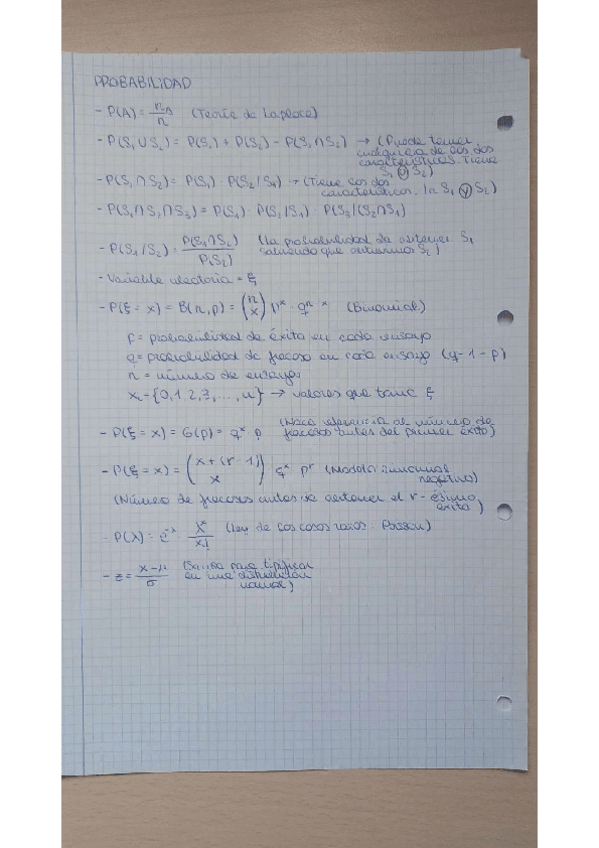 PROBABILIDAD
- P(A) = n_A / n (Teoría de Laplace)
- P(S₁∪S₂) = P(S₁) + P(S₂) - P(S₁∩S₂) → (Puede tener
cualquiera de los dos
características. Tiene
S₁ o S₂)
- P(S₁∩S₂) = P(S₁) · P(S₂/S₁) → (Tiene los dos
características. S₁ y S₂)
- P(S₁∩S₂∩S₃) = P(S₁) · P(S₂/S₁) · P(S₃/(S₂∩S₁)
- P(S₁/S₂) = P(S₁∩S₂) / P(S₂) (la probabilidad de obtener S₁
sabiendo que obtuvimos S₂)
- Variable aleatoria = ξ
- P(ξ = x) = B(n, p) = (n x) pˣ · qⁿ⁻ˣ (Binomial)
p = probabilidad de éxito en cada ensayo
q = probabilidad de fracaso en cada ensayo (q = 1 - p)
n = número de ensayos
x = {0, 1, 2, 3, ..., n} → valores que toma ξ
- P(ξ = x) = G(p) = qˣ · p (Hace referencia al número de
fracasos antes del primer éxito)
- P(ξ = x) = (x + (r - 1) x) · qˣ · pʳ (Modelo binomial
negativo)
(Número de fracasos antes de obtener el r-ésimo
éxito)
- P(λ) = e^-λ · λˣ / x! (Ley de los casos raros. Poisson)
- z = x - μ / σ (para tipificar
en una distribución
normal)